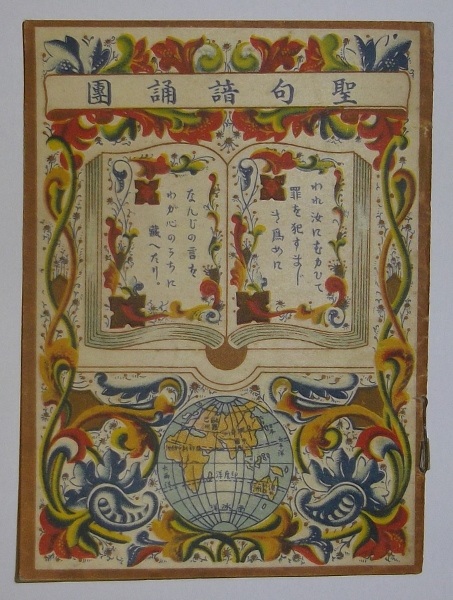 聖句諳誦團
われ汝にむかひて
罪を犯すまじ
き爲めに
なんじの言を
わが心のうちに
藏へたり。
印度洋